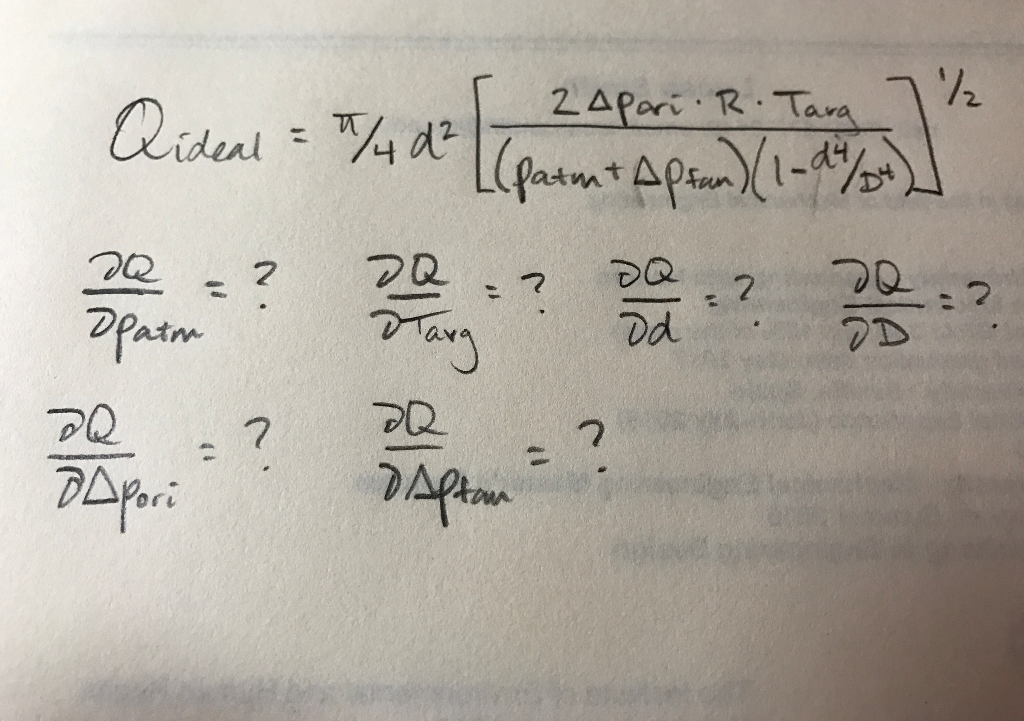 Qideal = π/4 d² [ 2 Δpori · R · Targ / (patm + Δpfan)(1 - d⁴/D⁴) ]^1/2
∂Q/∂patm = ? ∂Q/∂Targ = ? ∂Q/∂d = ? ∂Q/∂D = ?
∂Q/∂Δpori = ? ∂Q/∂Δpfan = ?